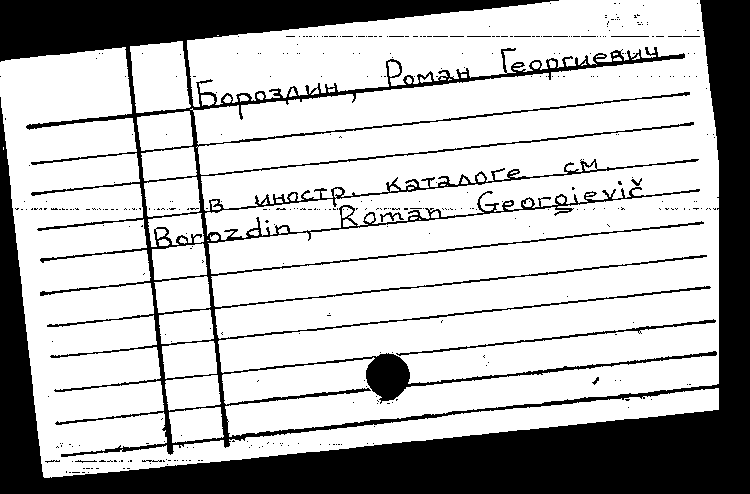 Бороздин, Роман Георгиевич
в иностр. каталоге см.
Borozdin, Roman Georgievič